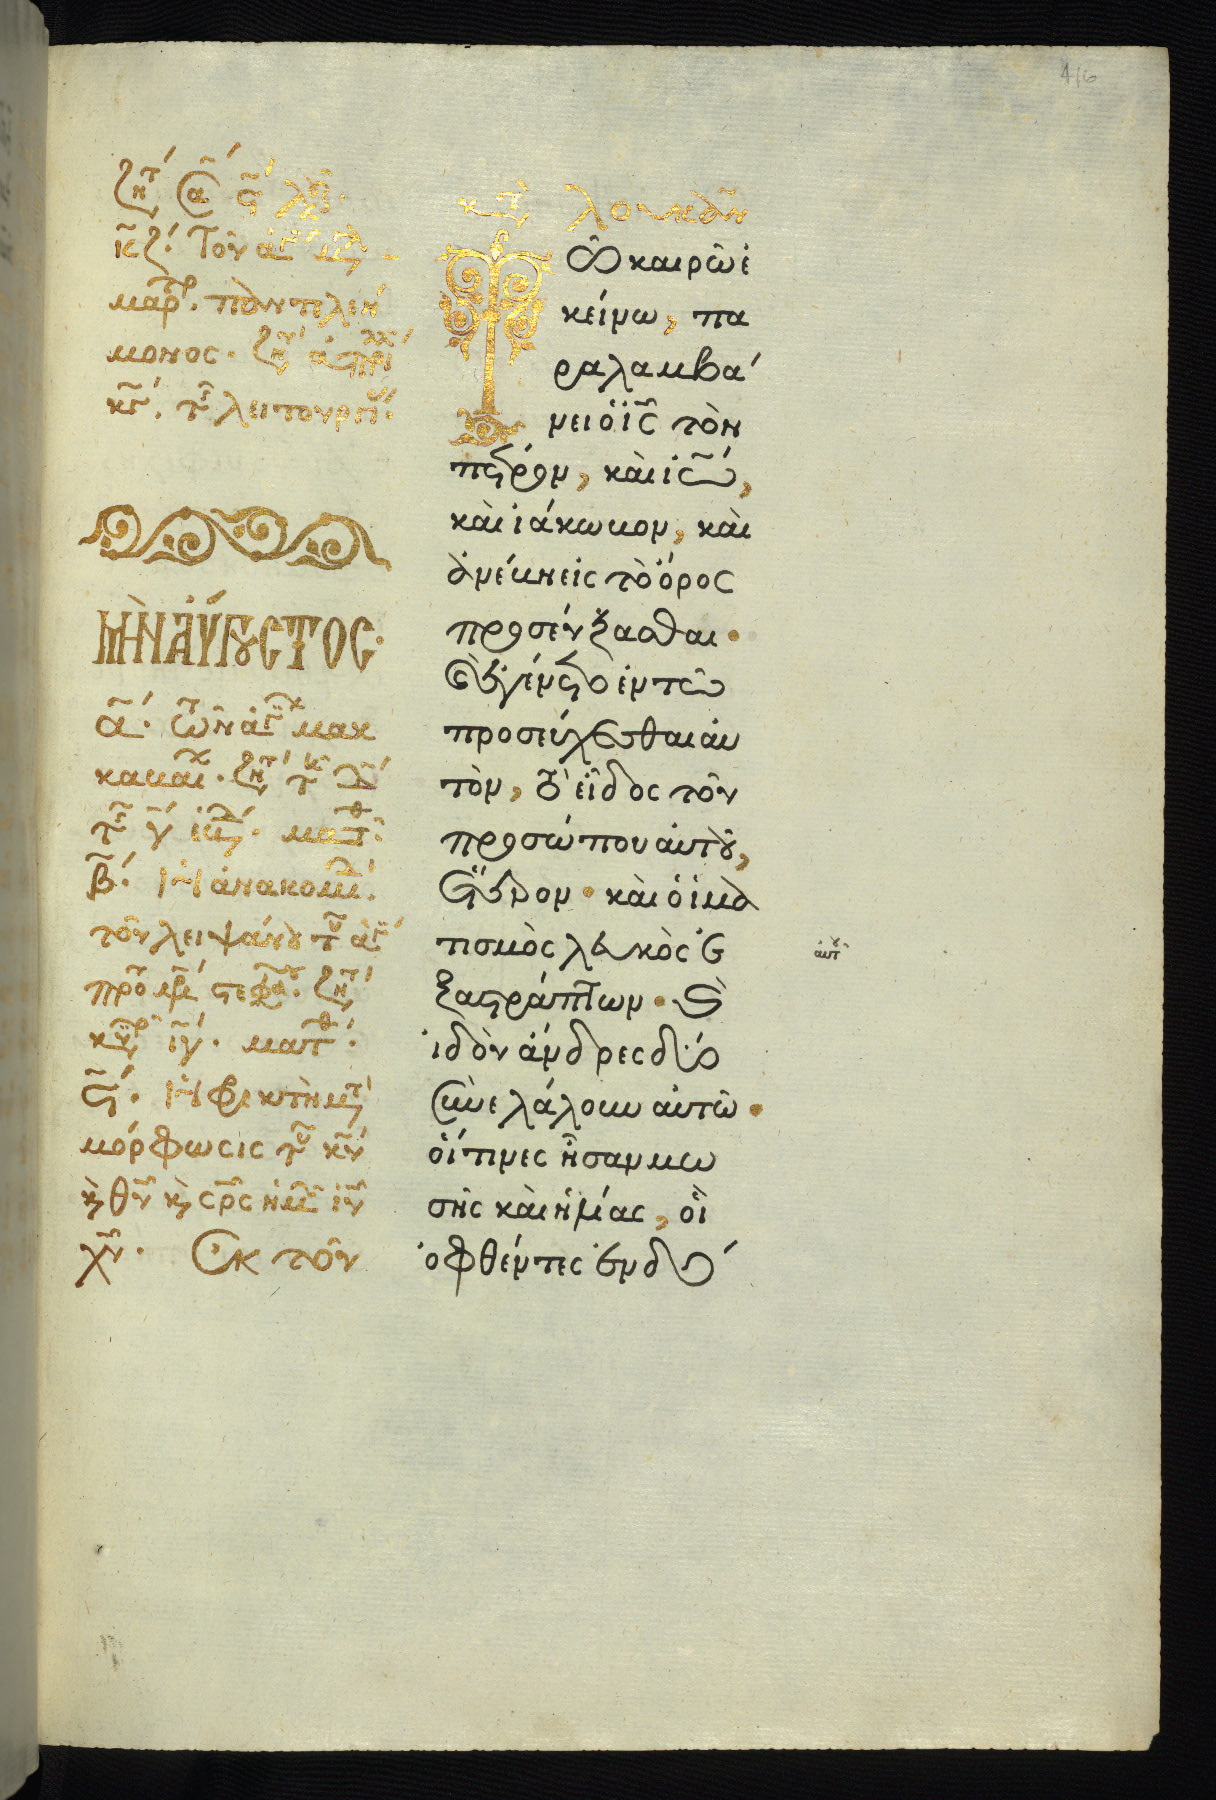 416
κζ. Τοῦ ἁγ
μαρ. παντελεή
μονος. ζητ
κγ. τῆς λειτουργ.
ΜῊΝ ΑὔΓȢϹΤΟϹ
α. τῶν ἁγ μακ
καβαι. ζητ
μα̅τ̅θ
β. Ἡ ἀνακομ.
τοῦ λειψάνȣ τοῦ ἁγ
πρωτομ στεφα. ζητ
κυρ ιγ. ματθ.
ϛ. Ἡ φρικτὴ μετ
μόρφωσις τοῦ κυ
κ θυ κ σρς ἡμ ιυ
χυ. Ἐκ τοῦ
κτ λουκὰν
Τῶ καιρῶ ἐ
κείνω, πα
ραλαμβά
νει ὁ ις τὸν
πέτρον, καὶ ιω,
καὶ ἰάκωβον, καὶ
ἀνέβη εἰς τὸ ὄρος
προσεύξασθαι.
Ἐγένετο ἐν τῶ
προσεύχεσθαι αὐ
τὸν, τὸ εἶδος τοῦ
προσώπου αὐτȣ,
ἕτερον. καὶ ὁ ἱμα
τισμὸς λευκὸς ἐ αὐτȣ
ξαστράπτων. κ
ἰδοὺ ἄνδρες δύο
συνελάλουν αὐτῶ.
οἵτινες ἦσαν μω
σῆς καὶ ἡλίας, οἳ
ὀφθέντες ἐν δό